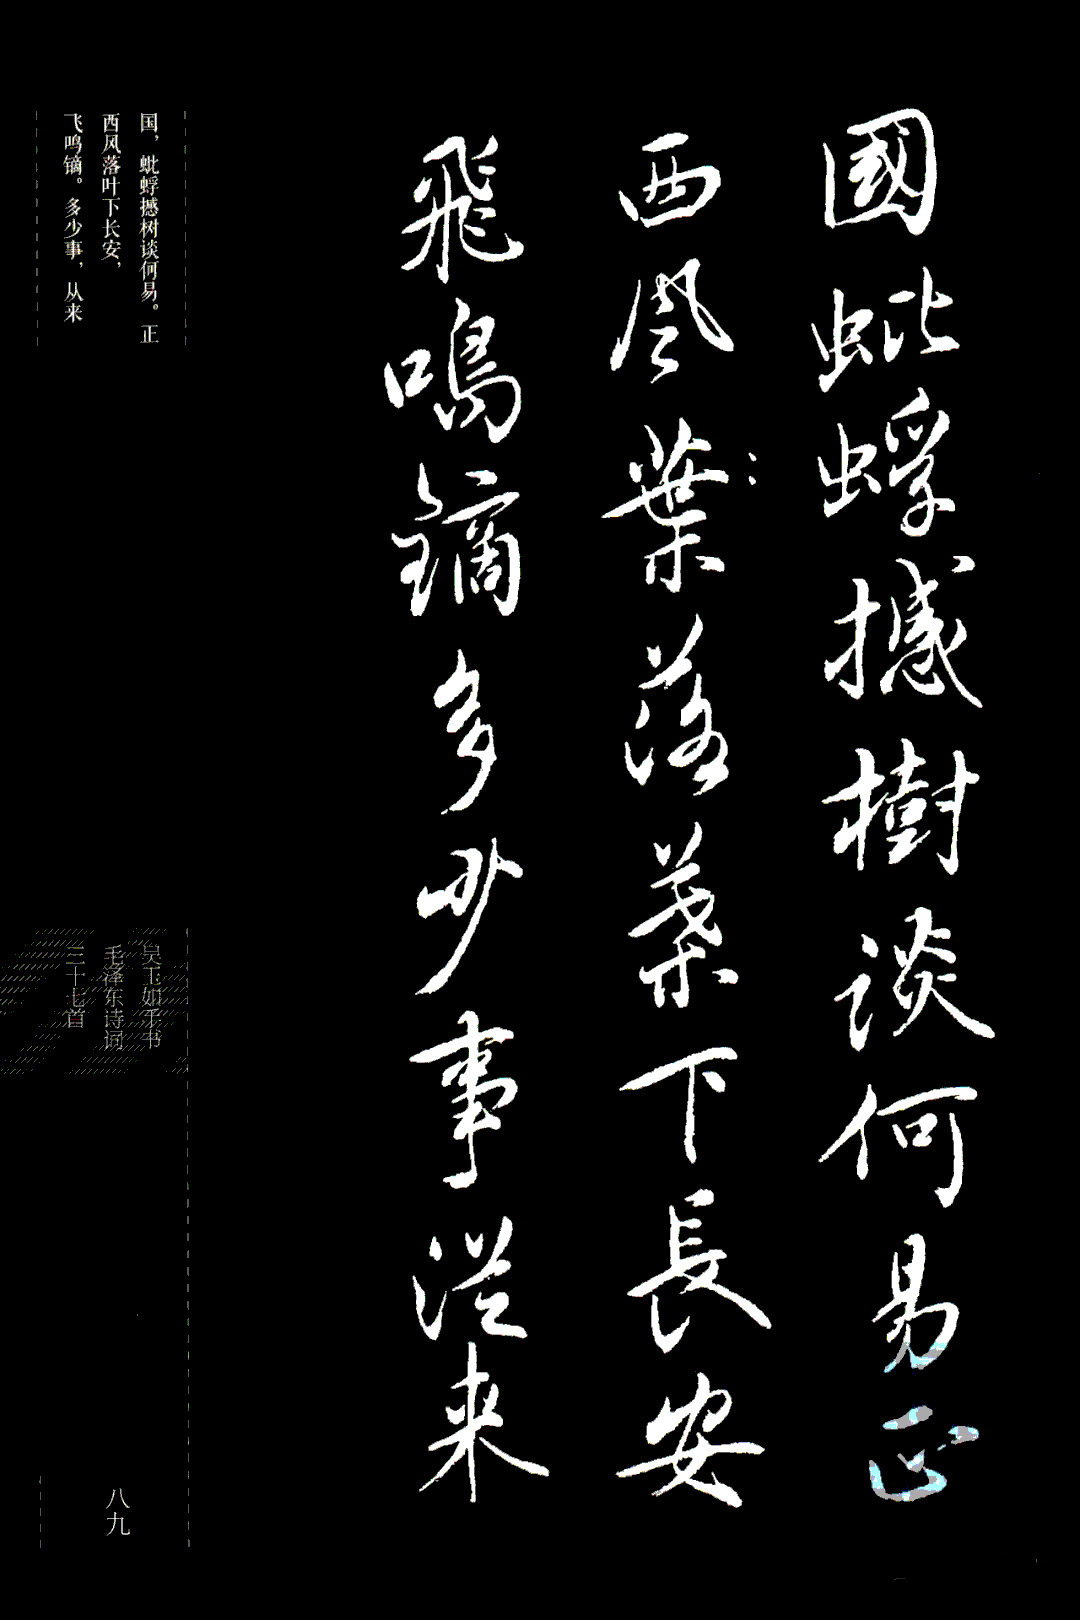 國蚍蜉撼樹談何易正
西風葉落葉下長安
飛鳴鏑多少事從来
国，蚍蜉撼树谈何易。正
西风落叶下长安，
飞鸣镝。多少事，从来
吴玉如手书
毛泽东诗词
三十七首
八九